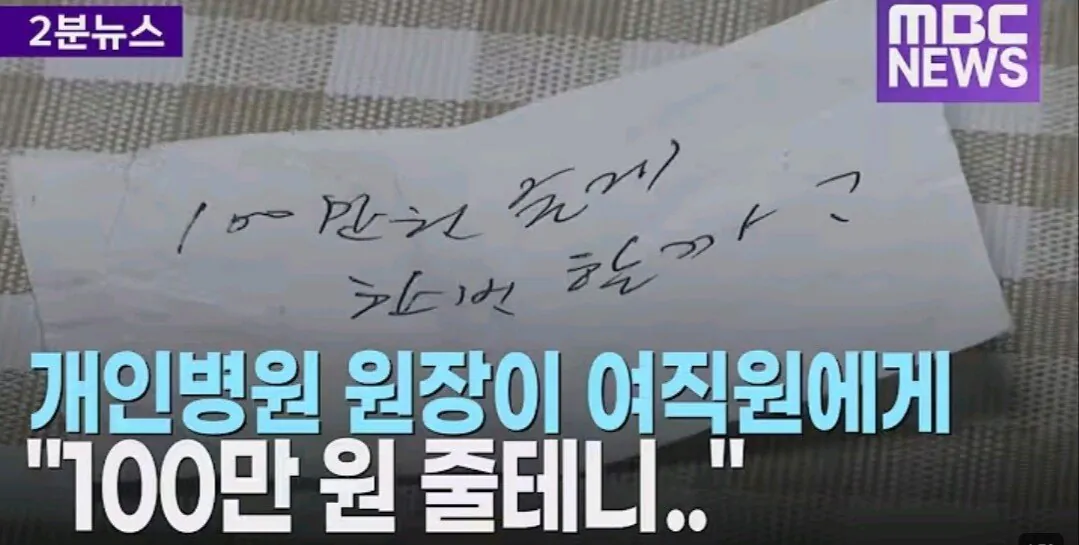 2분뉴스
MBC
NEWS
100만원 줄게
한번 할까?
개인병원 원장이 여직원에게
"100만 원 줄테니.."